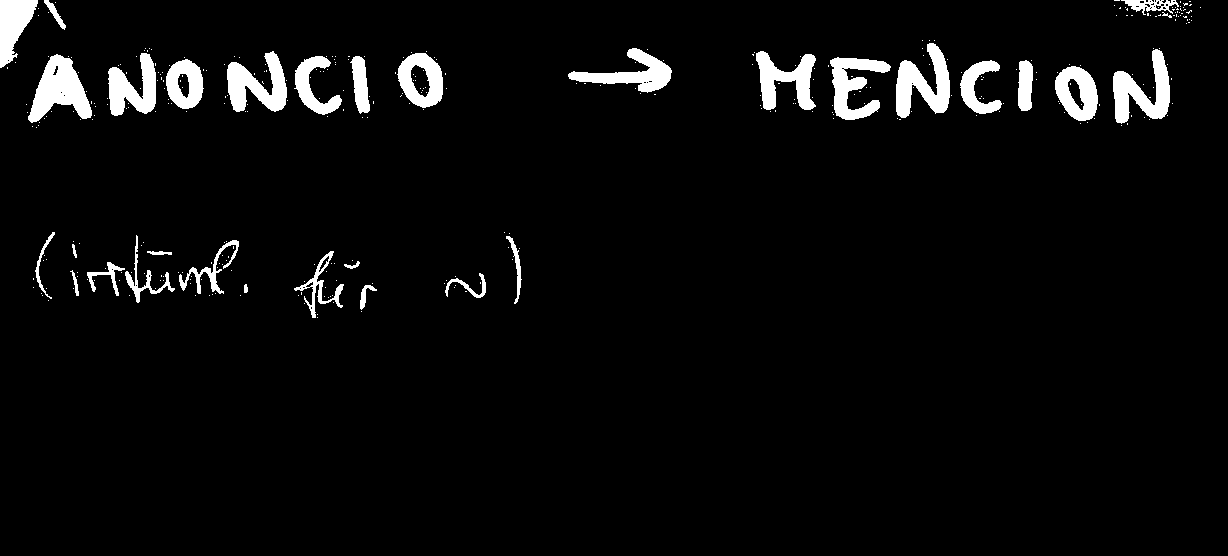 ANONCIO → MENCION
(irrtüml. für ~)